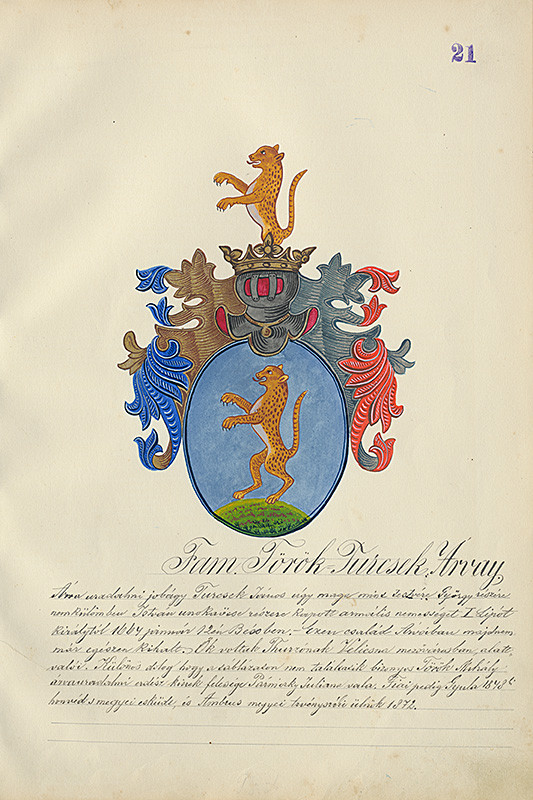 21
Fam. Török-Turcsek, Árvay,
Árva uradalmi jobágy Turcsek János úgy maga mint észvére György részére
nemkülömben István unokaöcse részére kapott armális nemességet I. Lipót
királytól 1667 január 12én Bécsben. Ezen család Árvában majdnem
már egészen kihalt. Ők voltak Thurzónak Velicsna mezővárosban alatt
valói. Különös dolog hogy a táblázaton nem találtatik bizonyos Török Mihály
árvauradalmi erdész kinek felesége Julianna vala. Fiai pedig Gyula 1848i
honvéd s megyei esküdt, és Ambrus megyei törvényszéki 1872.